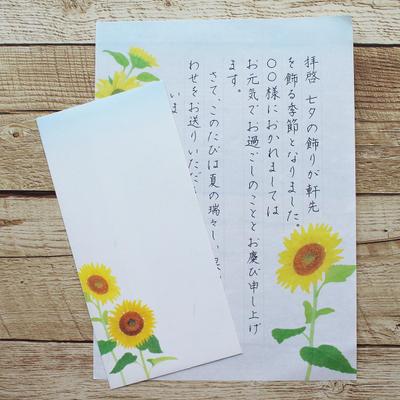 拝啓 七夕の飾りが軒先
を飾る季節となりました。
〇〇様におかれましては
お元気でお過ごしのこととお慶び申し上げ
ます。
さて、このたびは夏の瑞々しい
わせをお送りいただ
いま